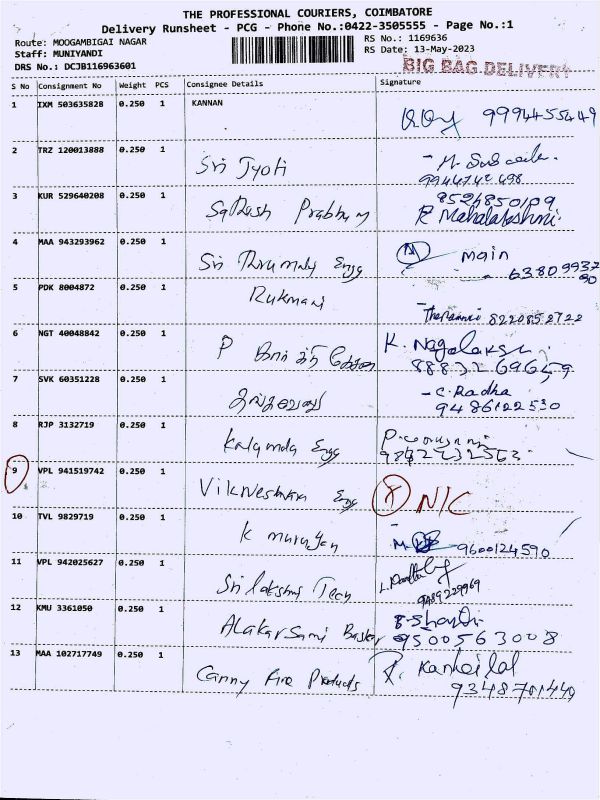 THE PROFESSIONAL COURIERS, COIMBATORE
Delivery Runsheet - PCG - Phone No.:0422-3505555 - Page No.:1
Route: MOOGAMBIGAI NAGAR RS No.: 1169636
Staff: MUNIYANDI RS Date: 13-May-2023
DRS No.: DCJB116963601 BIG BAG DELIVERY
S No Consignment No Weight PCS Consignee Details Signature
1 IXM 503635828 0.250 1 KANNAN 9994455449
2 TRZ 120013888 0.250 1 Sri Jyoti
9944742498
3 KUR 529640208 0.250 1 Sathish Prabhu 8526850109
R Mahalakshmi.
4 MAA 943293962 0.250 1 Sri Thirumalai Engg main
63809932
90
5 PDK 8004872 0.250 1 Rukmani
8220852722
6 NGT 40048842 0.250 1 P K. Nagalaksmi
8883269659
7 SVK 60351228 0.250 1 C. Radha
9486122530
8 RJP 3132719 0.250 1 Engg
9 VPL 941519742 0.250 1 Vikneshwara Engg X N/C
10 TVL 9829719 0.250 1 K murugan
9600124590
11 VPL 942025627 0.250 1 Sri lakshmi Tech
9489229969
12 KMU 3361050 0.250 1 Alakarsami Baskar B. Shanthi
9500563008
13 MAA 102717749 0.250 1 Canny Fire Products
9348701449